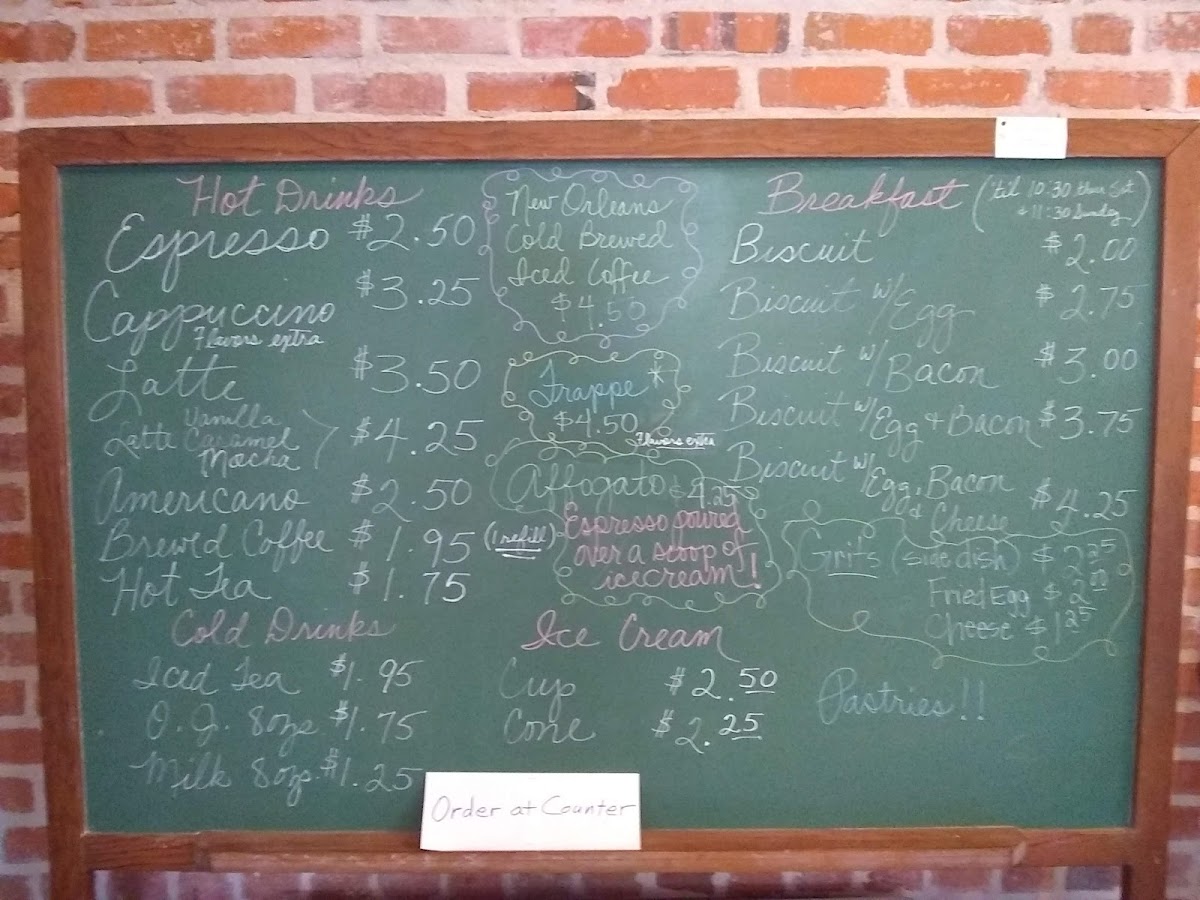 Hot Drinks
Espresso $2.50
Cappuccino $3.25
Flavors extra
Latte $3.50
Latte Vanilla Caramel Mocha $4.25
Americano $2.50
Brewed Coffee $1.95 (1 refill)
Hot Tea $1.75
Cold Drinks
Iced Tea $1.95
O.J. 8ozs $1.75
Milk 8ozs. $1.25
New Orleans
Cold Brewed
Iced Coffee
$4.50
Frappe*
$4.50
Flavors extra
Affogato $4.25
Espresso poured
over a scoop of
icecream!
Ice Cream
Cup $2.50
Cone $2.25
Breakfast ('til 10:30 thur Sat
+ 11:30 Sunday)
Biscuit $2.00
Biscuit w/Egg $2.75
Biscuit w/Bacon $3.00
Biscuit w/Egg + Bacon $3.75
Biscuit w/Egg, Bacon
& Cheese $4.25
Grits (side dish) $2.25
Fried Egg $2.00
Cheese $1.25
Pastries!!
Order at Counter